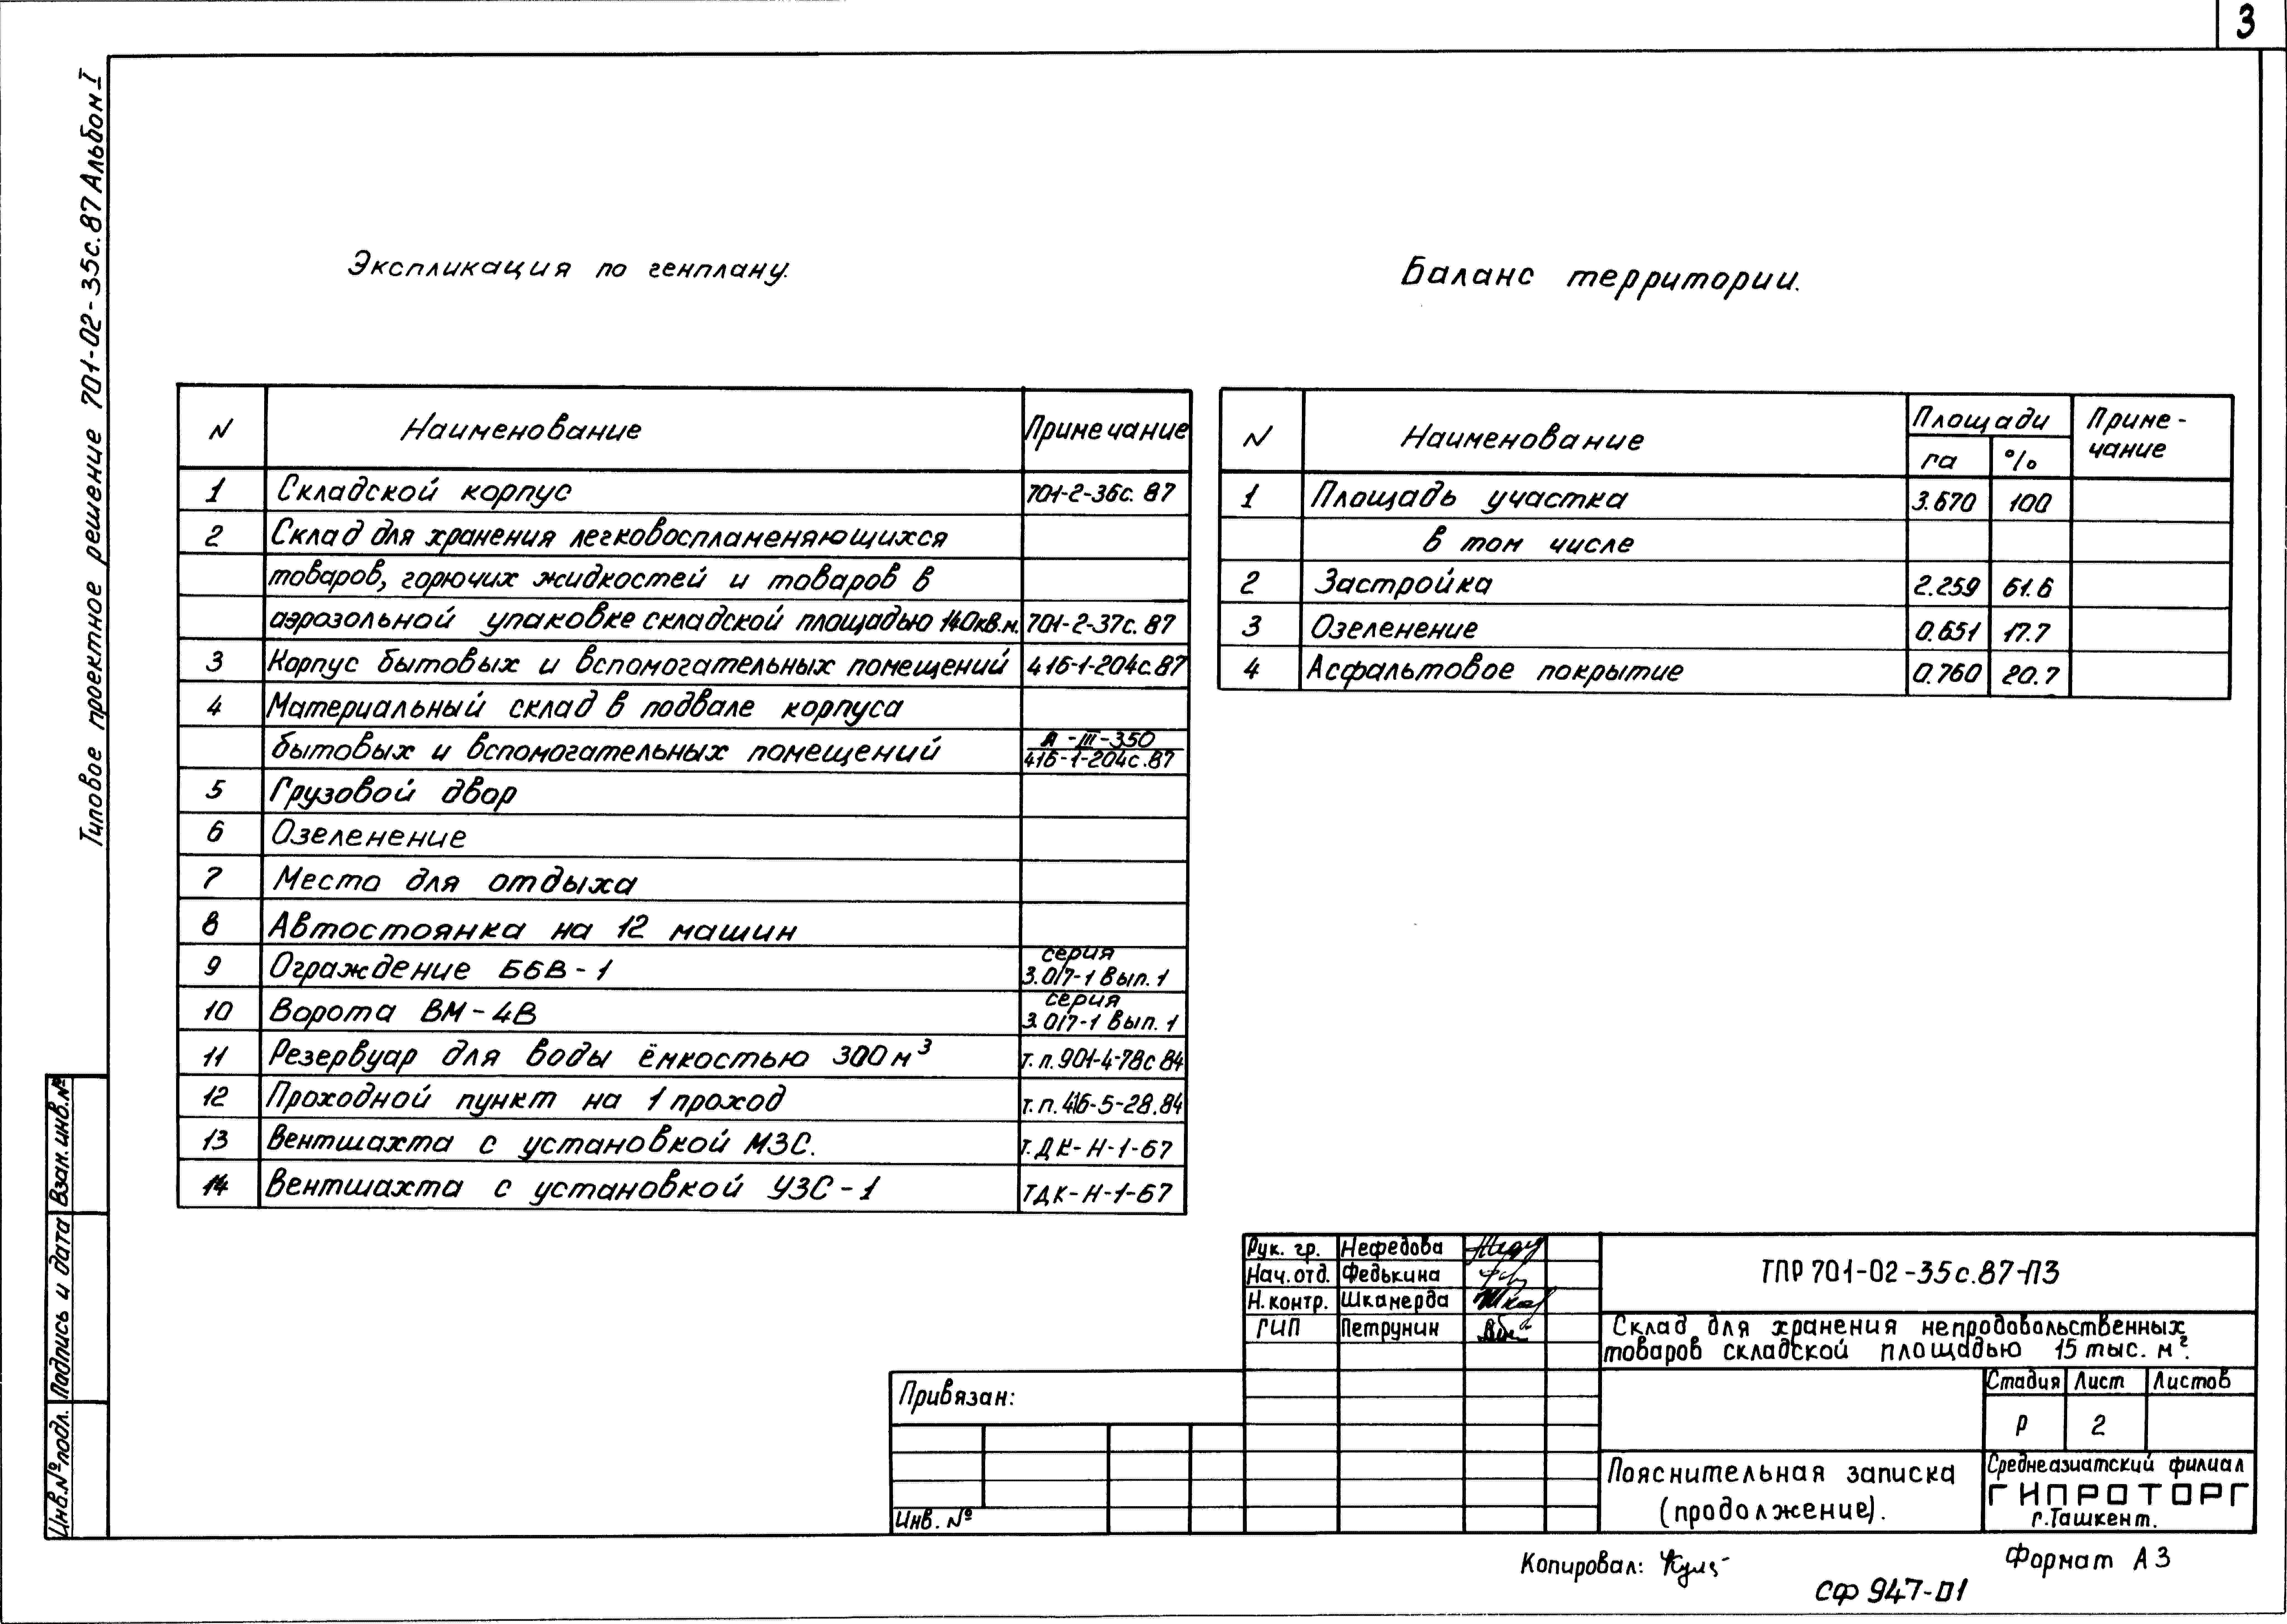 3
Типовое проектное решение 701-02-35с.87 Альбом I
Экспликация по генплану.
N Наименование Примечание
1 Складской корпус 701-2-36с.87
2 Склад для хранения легковоспламеняющихся
товаров, горючих жидкостей и товаров в
аэрозольной упаковке складской площадью 140кв.м. 701-2-37с.87
3 Корпус бытовых и вспомогательных помещений 416-1-204с.87
4 Материальный склад в подвале корпуса
бытовых и вспомогательных помещений А-III-350
416-1-204с.87
5 Грузовой двор
6 Озеленение
7 Место для отдыха
8 Автостоянка на 12 машин
9 Ограждение ББВ-1 серия
3.017-1 Вып.1
10 Ворота ВМ-4В серия
3.017-1 Вып.1
11 Резервуар для воды ёмкостью 300м³ т.п.901-4-78с84
12 Проходной пункт на 1 проход т.п.416-5-28.84
13 Вентшахта с установкой МЗС. т.ДК-Н-1-67
14 Вентшахта с установкой УЗС-1 ТДК-Н-1-67
Баланс территории.
N Наименование Площади Приме-
га % чание
1 Площадь участка 3.670 100
в том числе
2 Застройка 2.259 61.6
3 Озеленение 0.651 17.7
4 Асфальтовое покрытие 0.760 20.7
Взам.инв.№
Подпись и дата
Инв.№подл.
Привязан:
Инв. №
Рук. гр. Нефедова
Нач.отд. Федькина
Н.контр. Шкамерда
ГИП Петрунин
ТПР 701-02-35с.87-ПЗ
Склад для хранения непродовольственных
товаров складской площадью 15 тыс. м².
Стадия Лист Листов
Р 2
Пояснительная записка
(продолжение).
Среднеазиатский филиал
ГИПРОТОРГ
г.Ташкент.
Копировал:
Формат А3
СФ 947-01